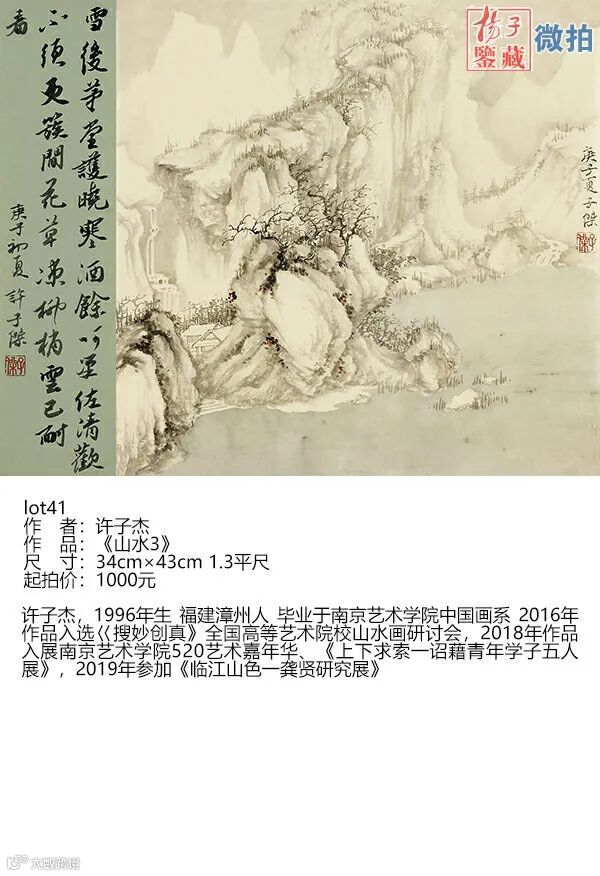 杨子
鑒藏
微拍
雪後茅堂護曉寒酒餘以是佐清歡
不須更簇閒花草凍柳梢雲已耐
看
庚子初夏許子傑
庚子夏子傑
lot41
作　者：许子杰
作　品：《山水3》
尺　寸：34cm×43cm 1.3平尺
起拍价：1000元
许子杰，1996年生 福建漳州人 毕业于南京艺术学院中国画系 2016年
作品入选巜搜妙创真》全国高等艺术院校山水画研讨会，2018年作品
入展南京艺术学院520艺术嘉年华、《上下求索一诏藉青年学子五人
展》，2019年参加《临江山色一龚贤研究展》
大数跨境